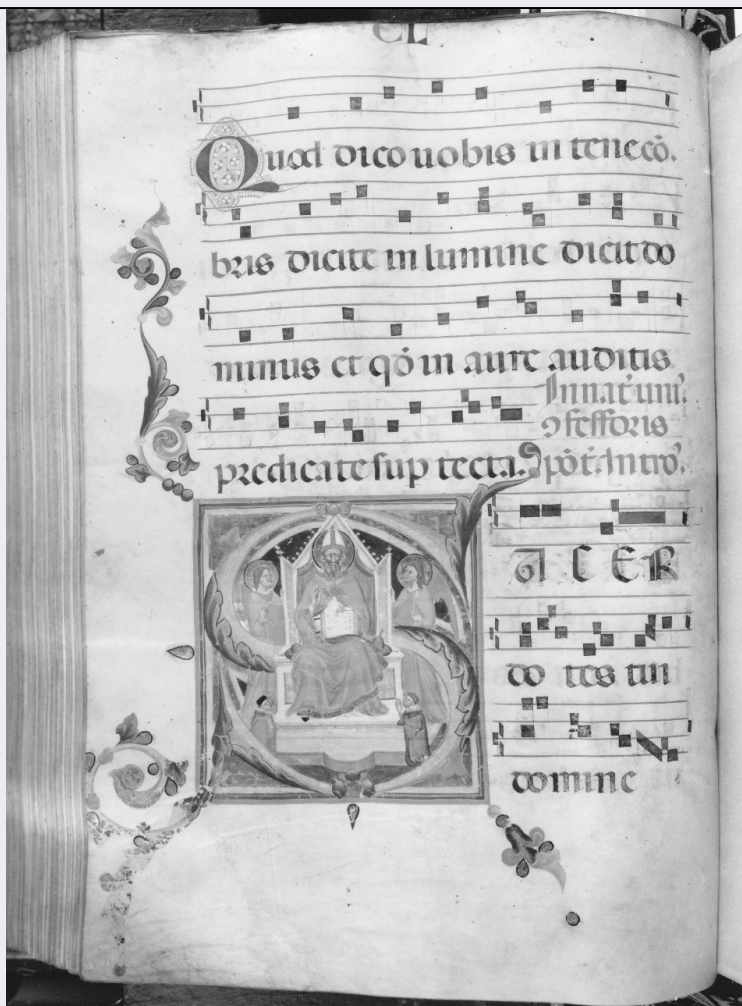 CL
Quod dico uobis in tenecō.
bris dicite in lumine dicit do
minus et qō in aure auditis
In nat' uni'
ɔfessoris
predicate sup tecta. pōt. Intro'.
ACER
do tes tui
domine